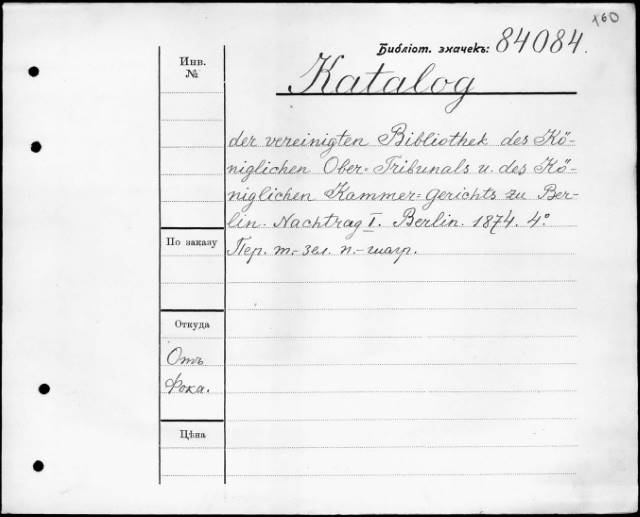 160
Библіот. значекъ: 84084.
Инв. №
Katalog
der vereinigten Bibliothek des Kö-
niglichen Ober-Tribunals u. des Kö-
niglichen Kammer=Gerichts zu Ber-
lin. Nachtrag I. Berlin. 1874. 4°
По заказу
Пер. т.-зел. п.-шагр.
Откуда
Отъ
Фока.
Цѣна